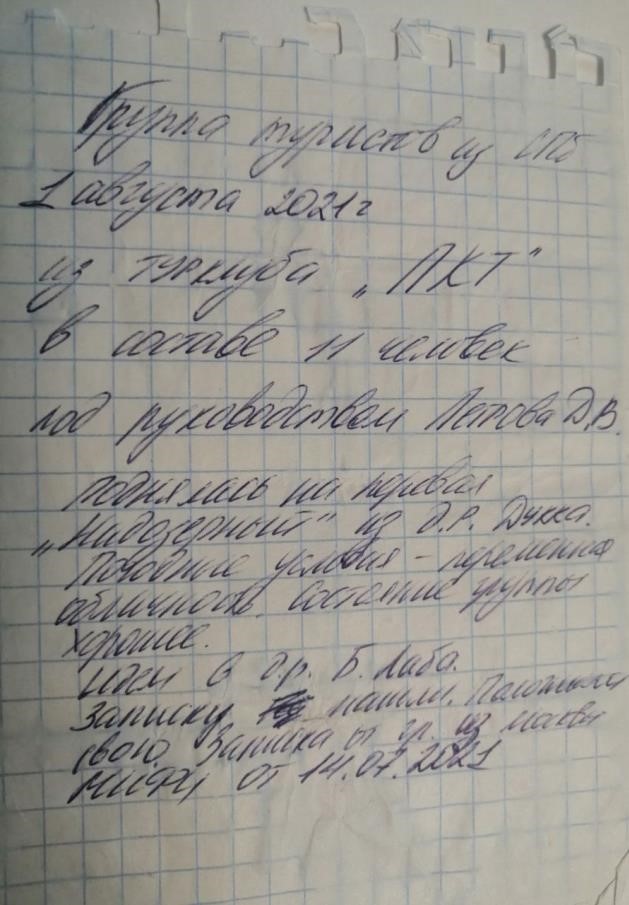 Группа туристов из СПб
1 августа 2021 г
из турклуба „ПКТ"
в составе 11 человек
под руководством Попова Д.В.
поднялась на перевал
„Надозерный" из д.р. Дукка.
Погодные условия - переменная
облачность. Состояние группы
хорошее.
Идем в д.р. Б. Лаба.
Записку нашли. Положили
свою. Записка от гр. из Москвы
МИФИ от 14.07.2021